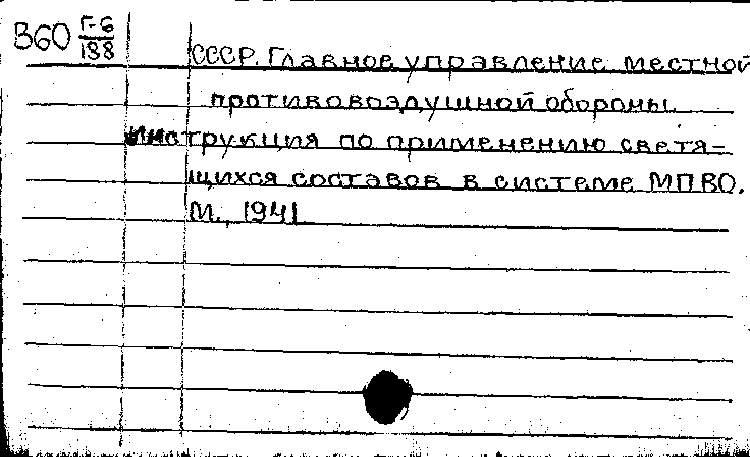 В60 Г-6/188
СССР. Главное управление местной
противовоздушной обороны.
Инструкция по применению светя-
щихся составов в системе МПВО.
М., 1941